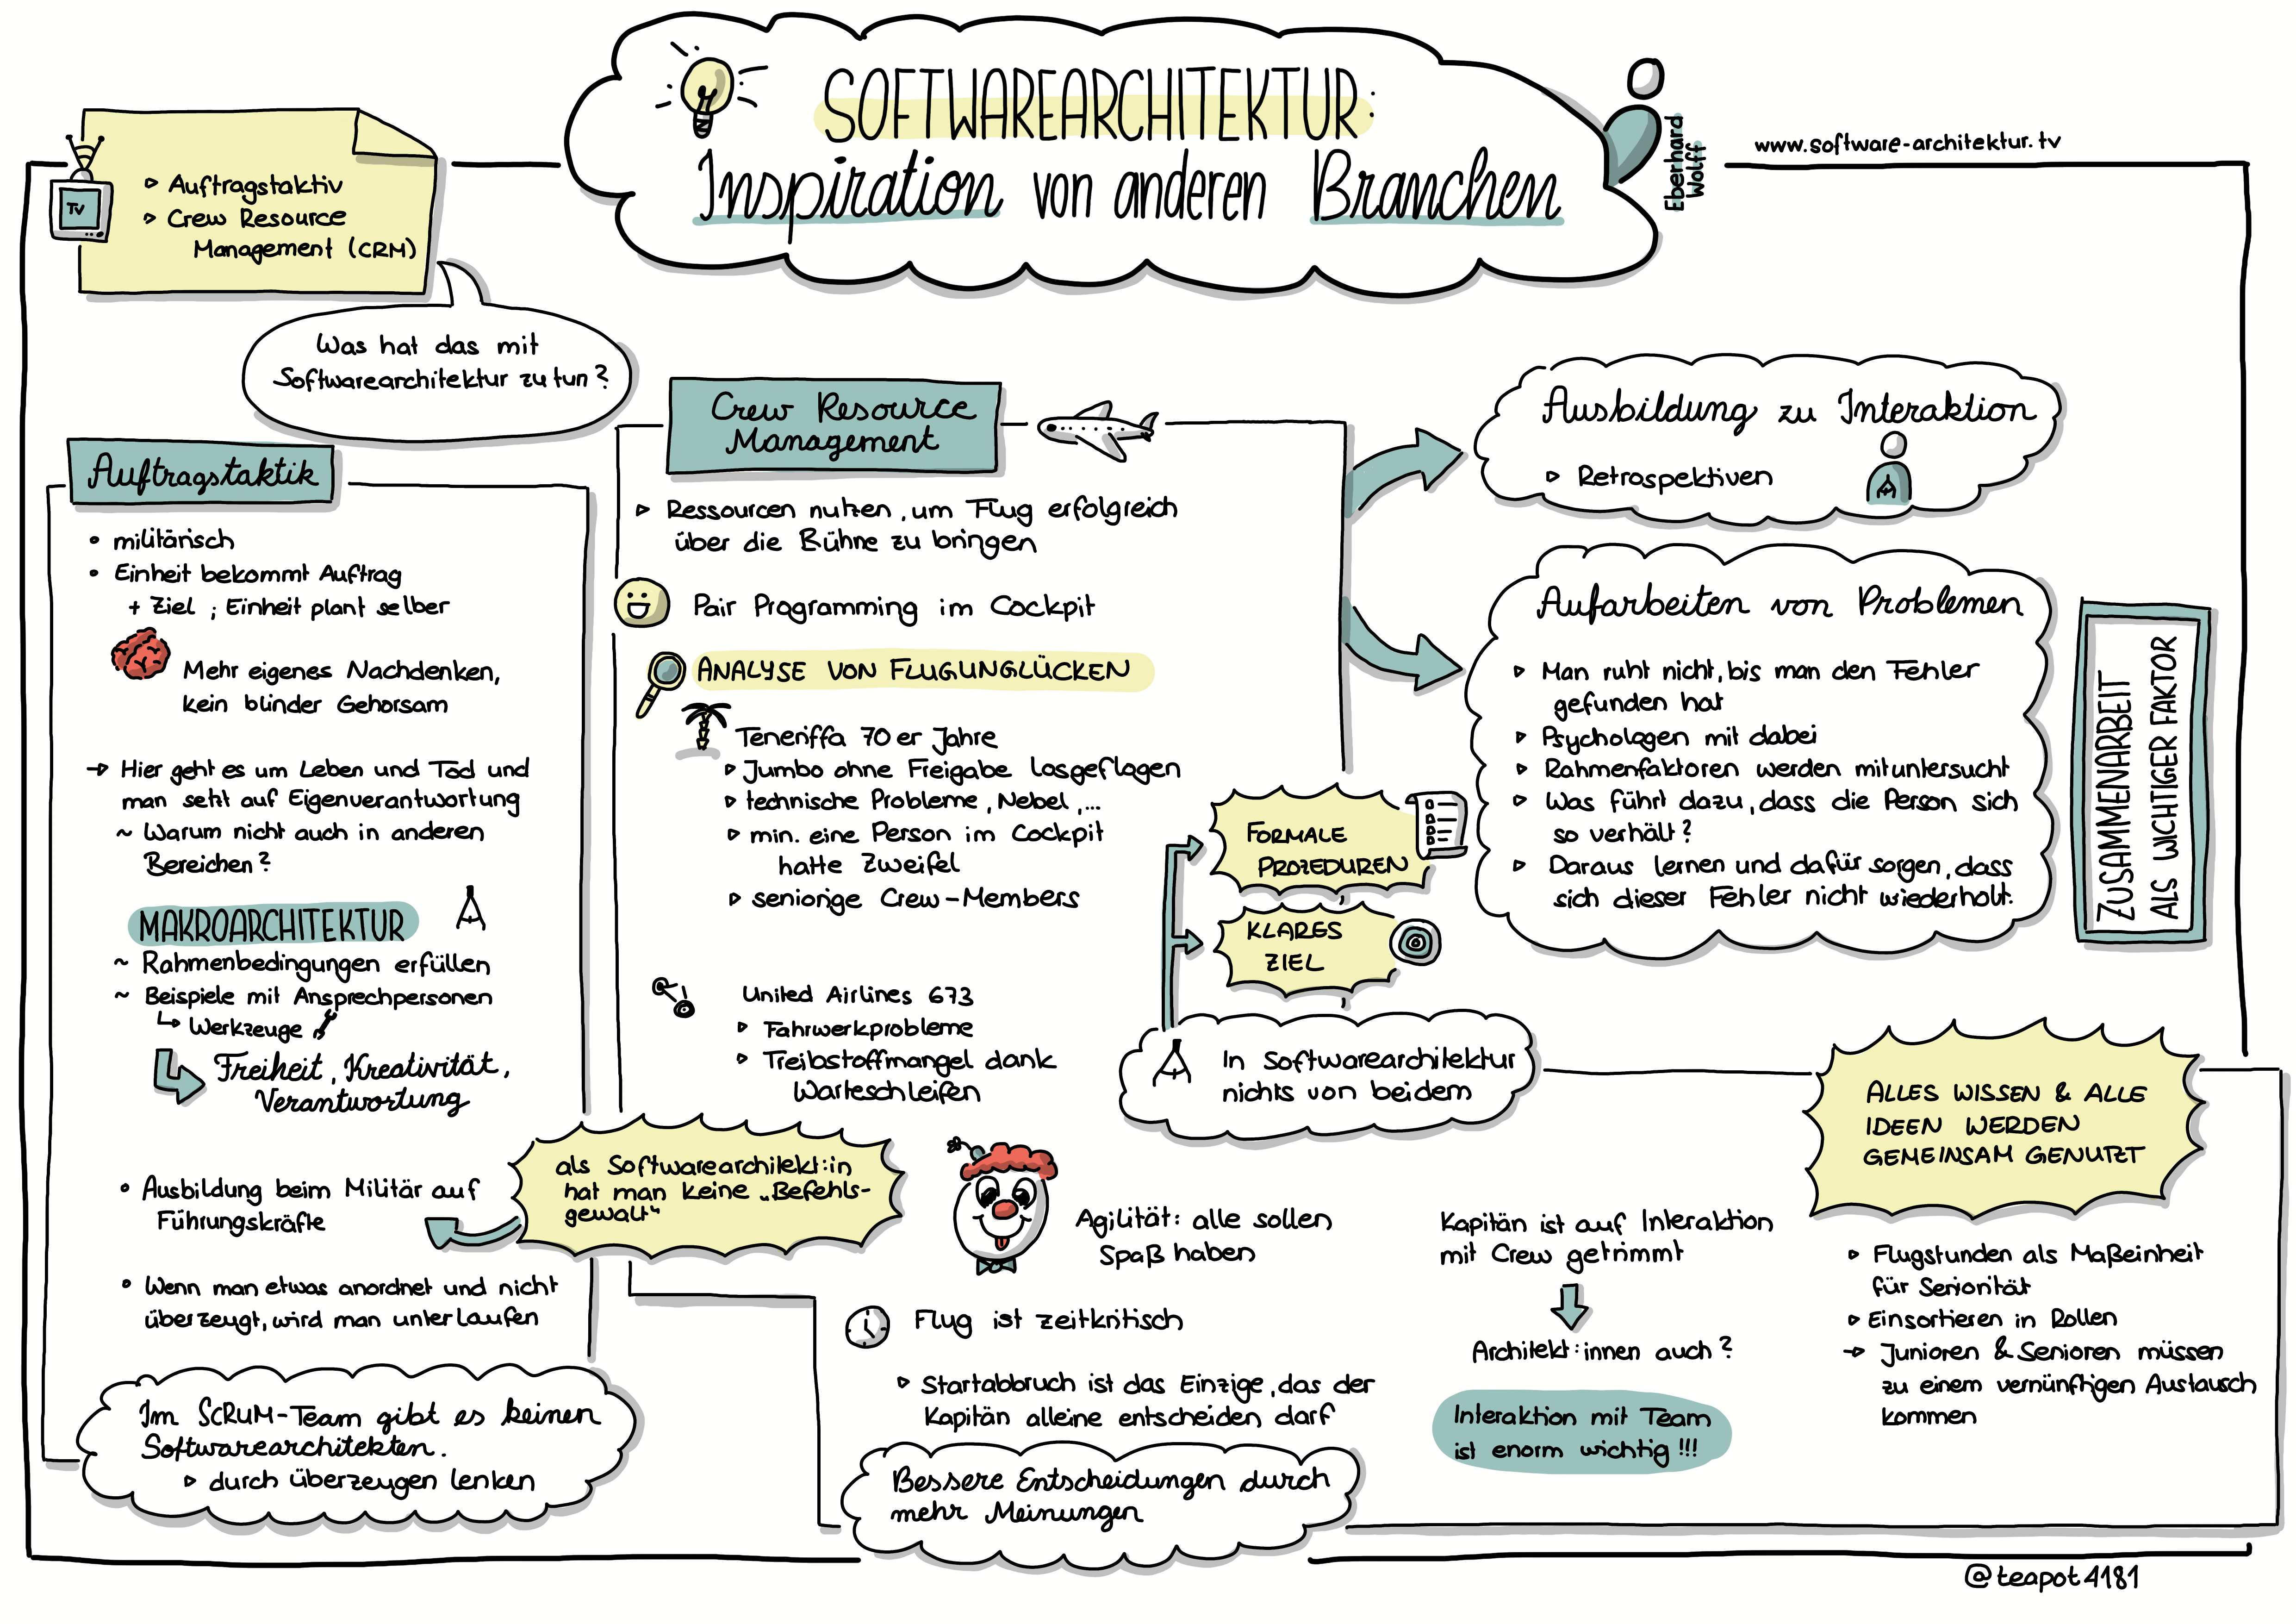 SOFTWAREARCHITEKTUR:
Inspiration von anderen Branchen
Eberhard
Wolff
www.software-architektur.tv
TV
▹ Auftragstaktiv
▹ Crew Resource
Management (CRM)
Was hat das mit
Softwarearchitektur zu tun?
Auftragstaktik
• militärisch
• Einheit bekommt Auftrag
+ Ziel ; Einheit plant selber
Mehr eigenes Nachdenken,
kein blinder Gehorsam
→ Hier geht es um Leben und Tod und
man setzt auf Eigenverantwortung
~ Warum nicht auch in anderen
Bereichen?
MAKROARCHITEKTUR
~ Rahmenbedingungen erfüllen
~ Beispiele mit Ansprechpersonen
↳ Werkzeuge
Freiheit, Kreativität,
Verantwortung
• Ausbildung beim Militär auf
Führungskräfte
• Wenn man etwas anordnet und nicht
überzeugt, wird man unterlaufen
Im SCRUM-Team gibt es keinen
Softwarearchitekten.
▹ durch überzeugen lenken
als Softwarearchitekt:in
hat man keine „Befehls-
gewalt"
Crew Resource
Management
▹ Ressourcen nutzen, um Flug erfolgreich
über die Bühne zu bringen
Pair Programming im Cockpit
ANALYSE VON FLUGUNGLÜCKEN
Teneriffa 70er Jahre
▹ Jumbo ohne Freigabe losgeflogen
▹ technische Probleme, Nebel,...
▹ min. eine Person im Cockpit
hatte Zweifel
▹ seniorige Crew-Members
United Airlines 673
▹ Fahrwerkprobleme
▹ Treibstoffmangel dank
Warteschleifen
FORMALE
PROZEDUREN
KLARES
ZIEL
In Softwarearchitektur
nichts von beidem
Agilität: alle sollen
Spaß haben
Flug ist zeitkritisch
▹ Startabbruch ist das Einzige, das der
Kapitän alleine entscheiden darf
Bessere Entscheidungen durch
mehr Meinungen
Kapitän ist auf Interaktion
mit Crew getrimmt
Architekt:innen auch?
Interaktion mit Team
ist enorm wichtig!!!
Ausbildung zu Interaktion
▹ Retrospektiven
Aufarbeiten von Problemen
▹ Man ruht nicht, bis man den Fehler
gefunden hat
▹ Psychologen mit dabei
▹ Rahmenfaktoren werden mituntersucht
▹ Was führt dazu, dass die Person sich
so verhält?
▹ Daraus lernen und dafür sorgen, dass
sich dieser Fehler nicht wiederholt.
ZUSAMMENARBEIT
ALS WICHTIGER FAKTOR
ALLES WISSEN & ALLE
IDEEN WERDEN
GEMEINSAM GENUTZT
▹ Flugstunden als Maßeinheit
für Seniorität
▹ Einsortieren in Rollen
→ Junioren & Senioren müssen
zu einem vernünftigen Austausch
kommen
@teapot4181